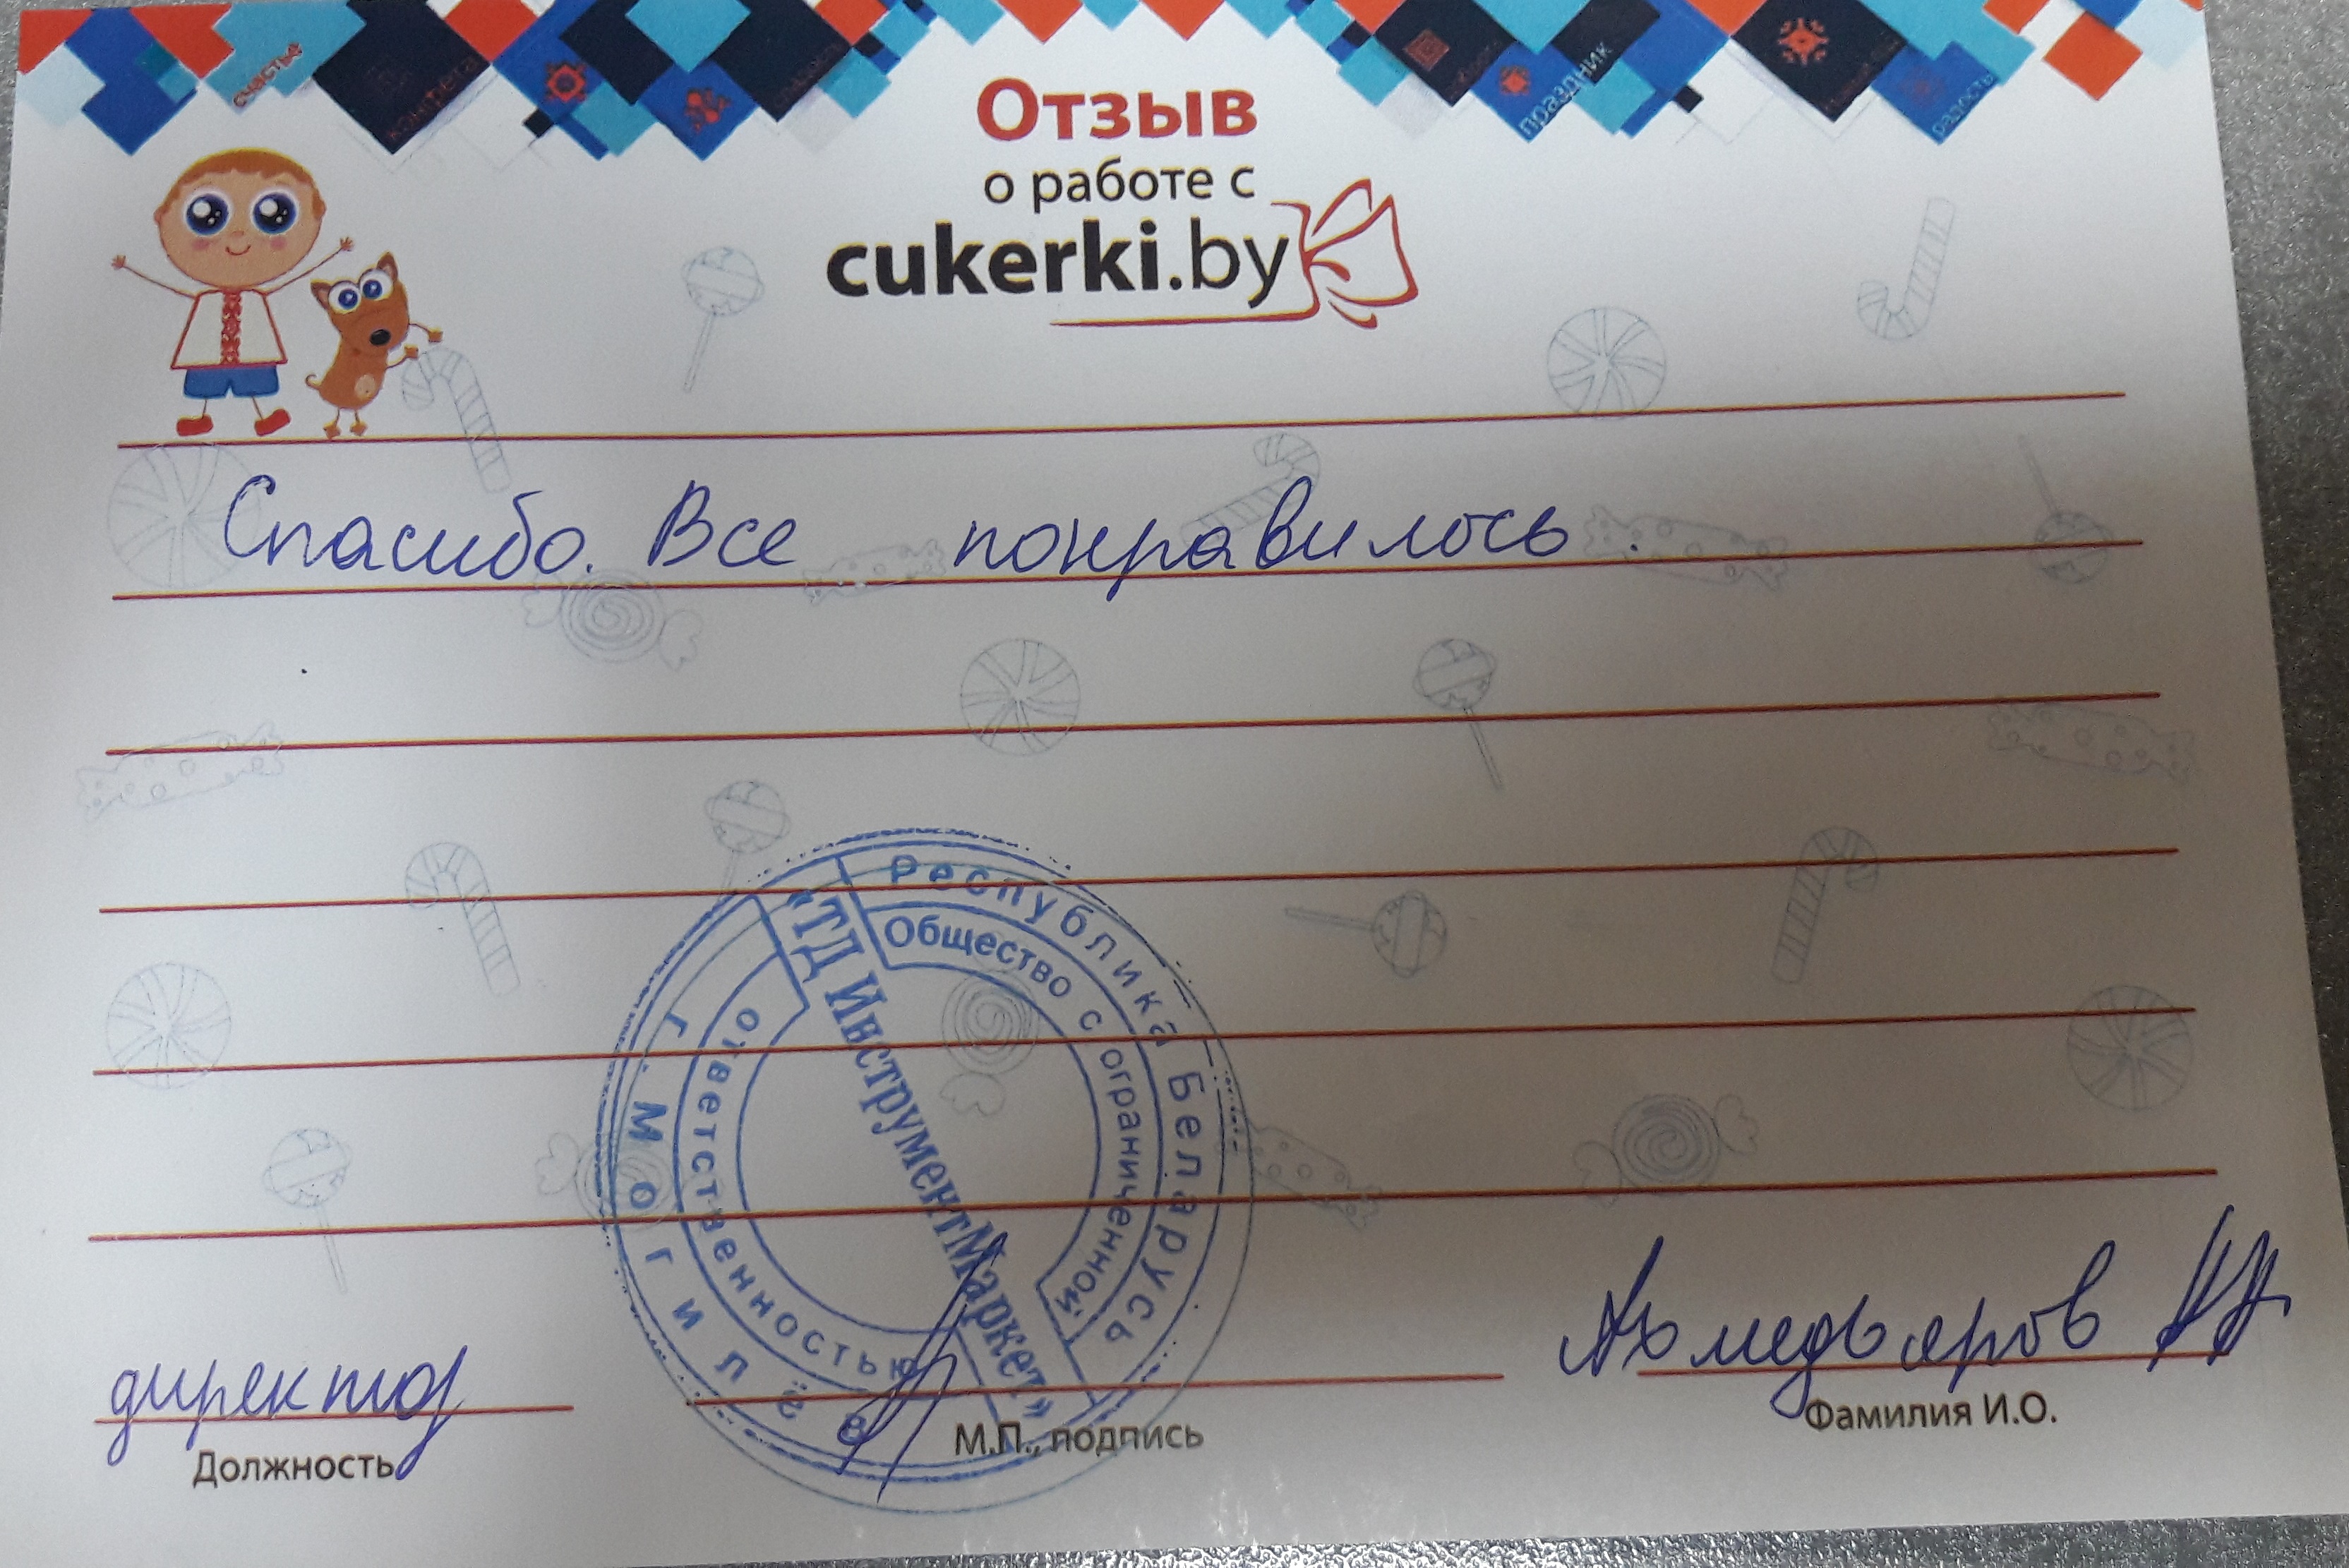 счастье
конфета
праздник
радость
Отзыв
о работе с
cukerki.by
Спасибо. Все понравилось.
Республика Беларусь
Общество с ограниченной
ответственностью
"ТД ИнструментМаркет»
г. Могилёв
директор
Ахмедьяров
Должность
М.П., подпись
Фамилия И.О.